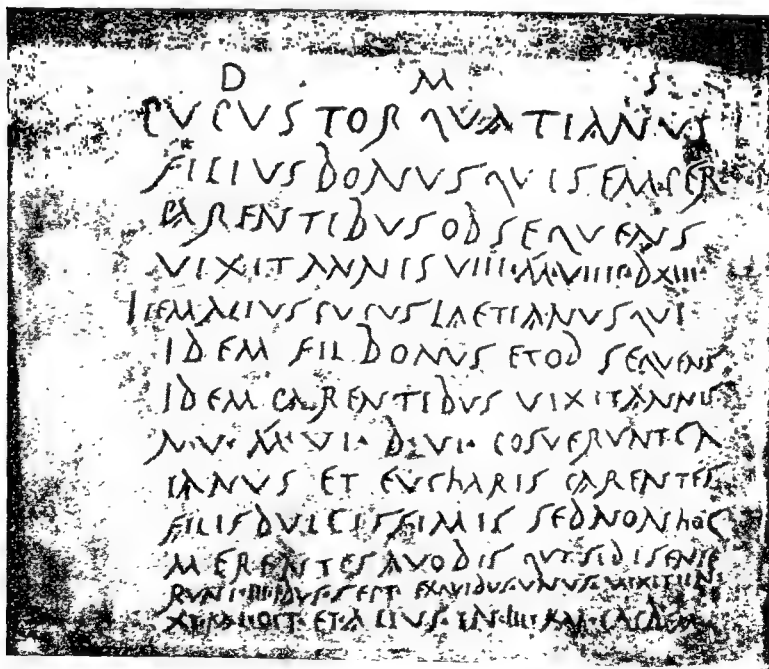 D M S
PUPUS TORQUATIANUS
FILIUS BONUS QUI SEMPER
PARENTIBUS OBSEQUENS
VIXIT ANNIS VIIII·M·VIIII·D·XIII·
ITEM ALIUS PUPUS LAETIANUS QUI
IDEM FIL BONUS ET OBSEQUENS
IDEM PARENTIBUS VIXIT ANNIS
N·V·M·VI·D·VI·POSUERUNT GA
IANUS ET EUCHARIS PARENTES
FILIS DULCISSIMIS SED NON HOC
MERENTES A VOBIS
IDUS·SEPT·EX QUIBUS·UNUS·VIXIT IN
OCT·ET ALIUS·IN·III·